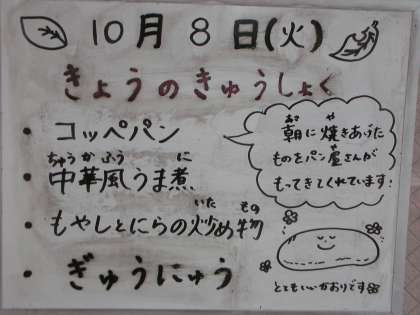 10月8日(火)
きょうのきゅうしょく
・コッペパン
ちゅうかふう に
・中華風うま煮
いた もの
・もやしとにらの炒め物
・ぎゅうにゅう
あさ や
朝に焼きあげた
や
ものをパン屋さんが
もってきてくれています!
とてもいいかおりです